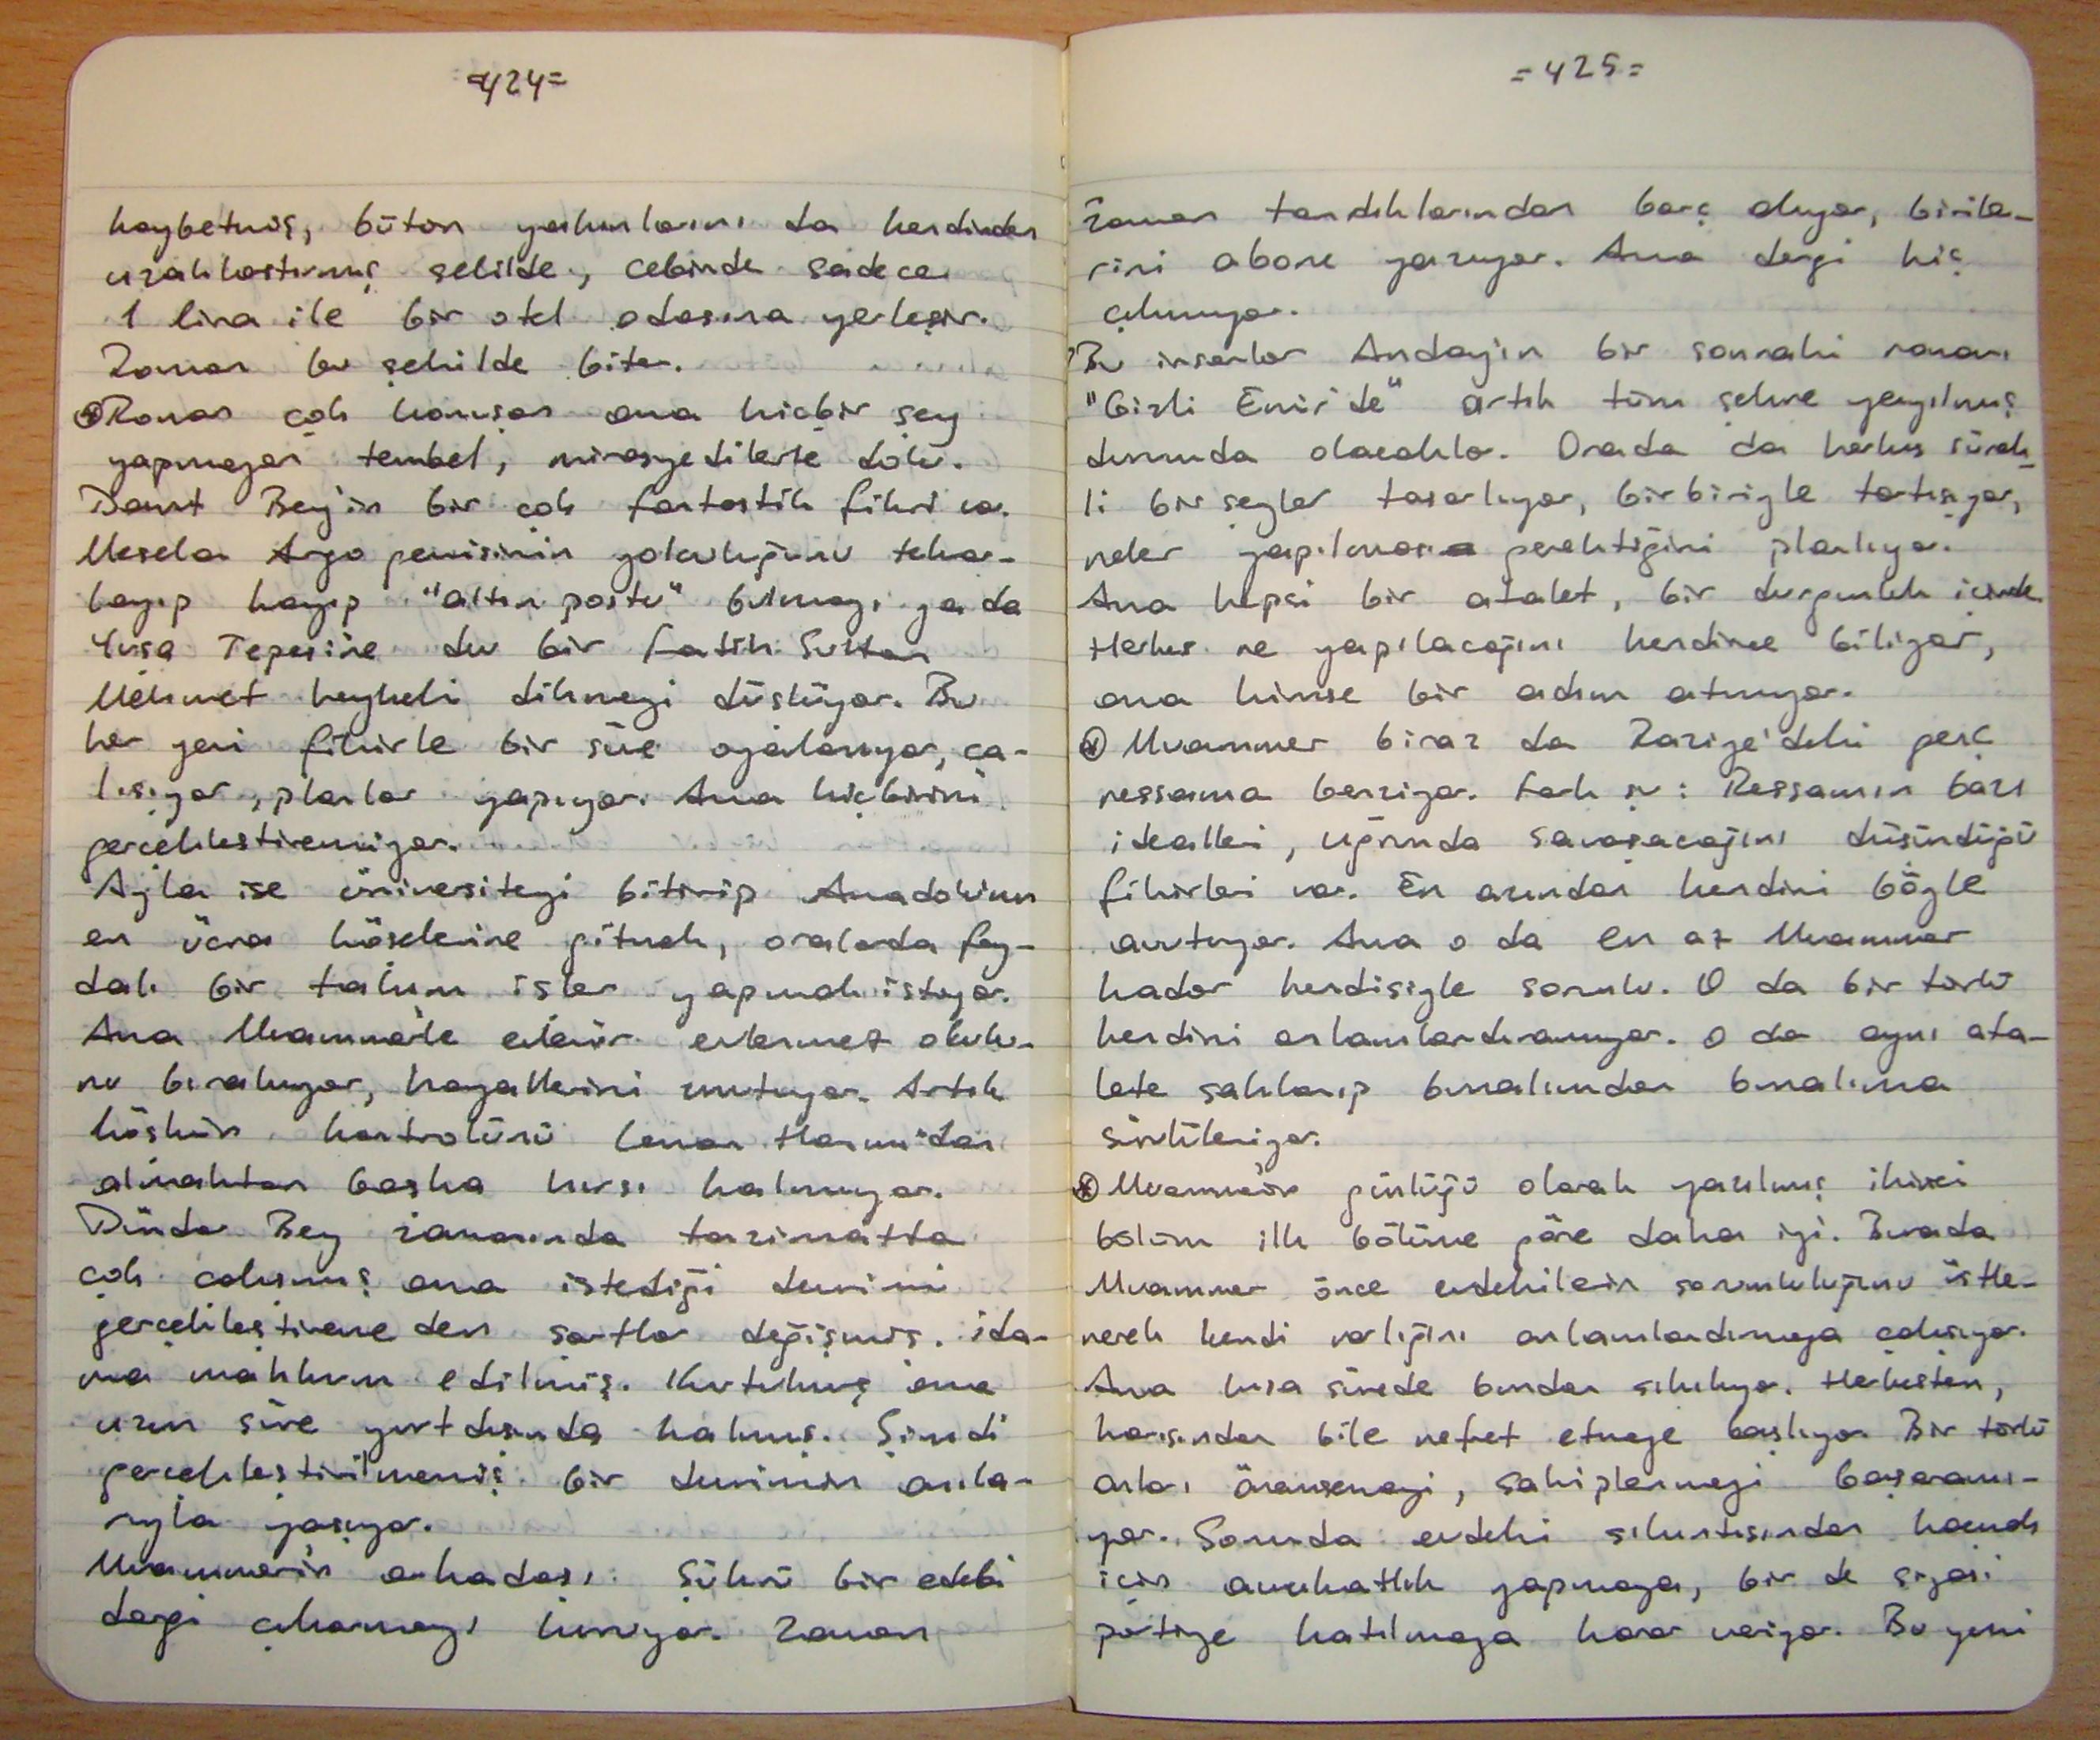 =424=
kaybetmiş, bütün yakınlarını da kendinden
uzaklaştırmış şekilde, cebinde sadece
1 lira ile bir otel odasına yerleşir.
Roman bu şekilde biter.
Roman çok konuşan ama hiçbir şey
yapmayan tembel, mirasyedilerle dolu.
Davut Bey'in bir çok fantastik fikri var.
Mesela Argo gemisinin yolculuğunu tekrar-
layıp kayıp "altın postu" bulmayı ya da
Yuşa Tepesine dev bir Fatih Sultan
Mehmet heykeli dikmeyi düşlüyor. Bu
her yeni fikirle bir süre oyalanıyor, ça-
lışıyor, planlar yapıyor. Ama hiçbirini
gerçekleştiremiyor.
Ayla ise üniversiteyi bitirip Anadolu'nun
en ücra köşelerine gitmek, oralarda fay-
dalı bir takım işler yapmak istiyor.
Ama Muammer'le evlenir evlenmez okulu-
nu bırakıyor, hayallerini unutuyor. Artık
köşkün kontrolünü Hanım'dan
almaktan başka hırsı kalmıyor.
Dündar Bey zamanında tanzimatta
çok çalışmış ama istediği devrimi
gerçekleştiremeden şartlar değişmiş. İda-
ma mahkum edilmiş. Kurtulmuş ama
uzun süre yurtdışında kalmış. Şimdi
gerçekleştirilmemiş bir devrimin anıla-
rıyla yaşıyor.
Muammer'in arkadaşı Şükrü bir edebi
dergi çıkarmayı kuruyor. Zaman
=425=
zaman tanıdıklarından borç alıyor, birile-
rini abone yazıyor. Ama dergi hiç
çıkmıyor.
Bu insanlar Anday'ın bir sonraki romanı
"Gizli Emir'de" artık tüm şehre yayılmış
durumda olacaklar. Orada da herkes sürek-
li bir şeyler tasarlıyor, birbiriyle tartışıyor,
neler yapılması gerektiğini planlıyor.
Ama hepsi bir atalet, bir durgunluk içinde.
Herkes ne yapılacağını kendince biliyor,
ama kimse bir adım atmıyor.
Muammer biraz da Raziye'deki genç
ressama benziyor. Fark şu: Ressamın bazı
idealleri, uğrunda savaşacağını düşündüğü
fikirleri var. En azından kendini böyle
avutuyor. Ama o da en az Muammer
kadar kendisiyle sorunlu. O da bir türlü
kendini anlamlandıramıyor. O da aynı ata-
lete saklanıp bunalımdan bunalıma
sürükleniyor.
Muammer'in günlüğü olarak yazılmış ikinci
bölüm ilk bölüme göre daha iyi. Burada
Muammer önce evdekilerin sorumluluğunu üstle-
nerek kendi varlığını anlamlandırmaya çalışıyor.
Ama kısa sürede bundan sıkılıyor. Herkesten,
karısından bile nefret etmeye başlıyor. Bir türlü
onları önemsemeyi, sahiplenmeyi başaramı-
yor. Sonunda evdeki sıkıntısından kaçmak
için avukatlık yapmaya, bir de siyasi
partiye katılmaya karar veriyor. Bu yeni